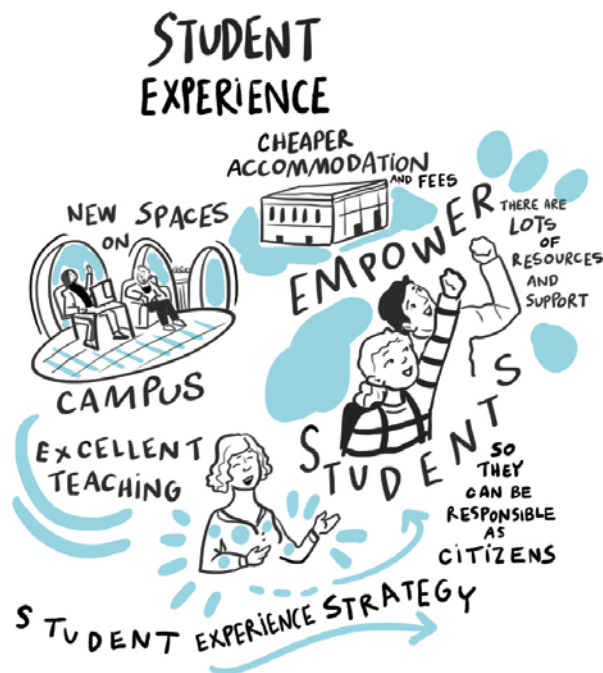 STUDENT
EXPERIENCE
CHEAPER
ACCOMMODATION
AND FEES
NEW SPACES
ON
CAMPUS
EMPOWER
STUDENTS
THERE ARE
LOTS
OF
RESOURCES
AND
SUPPORT
EXCELLENT
TEACHING
SO
THEY
CAN BE
RESPONSIBLE
AS
CITIZENS
STUDENT EXPERIENCE STRATEGY